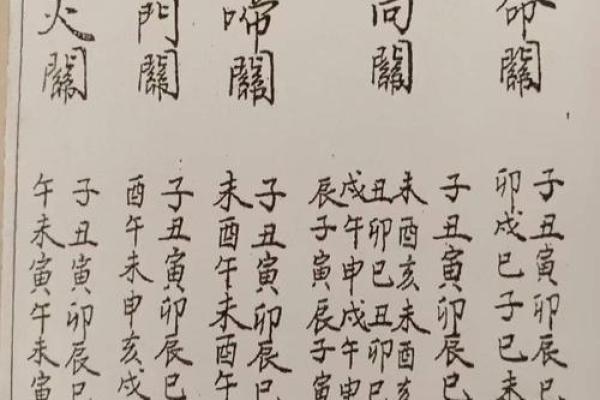 命關
子丑寅卯辰巳
卯戌巳子巳未
關
子丑寅卯辰巳
未酉亥未酉亥
丑卯巳丑卯巳
戌午申戌午申
辰子寅辰子寅
啼關
子丑寅卯辰巳
未酉午未酉午
門關
子丑寅卯辰巳
酉午未申亥戌
火關
子丑寅卯辰巳
午未寅午未寅